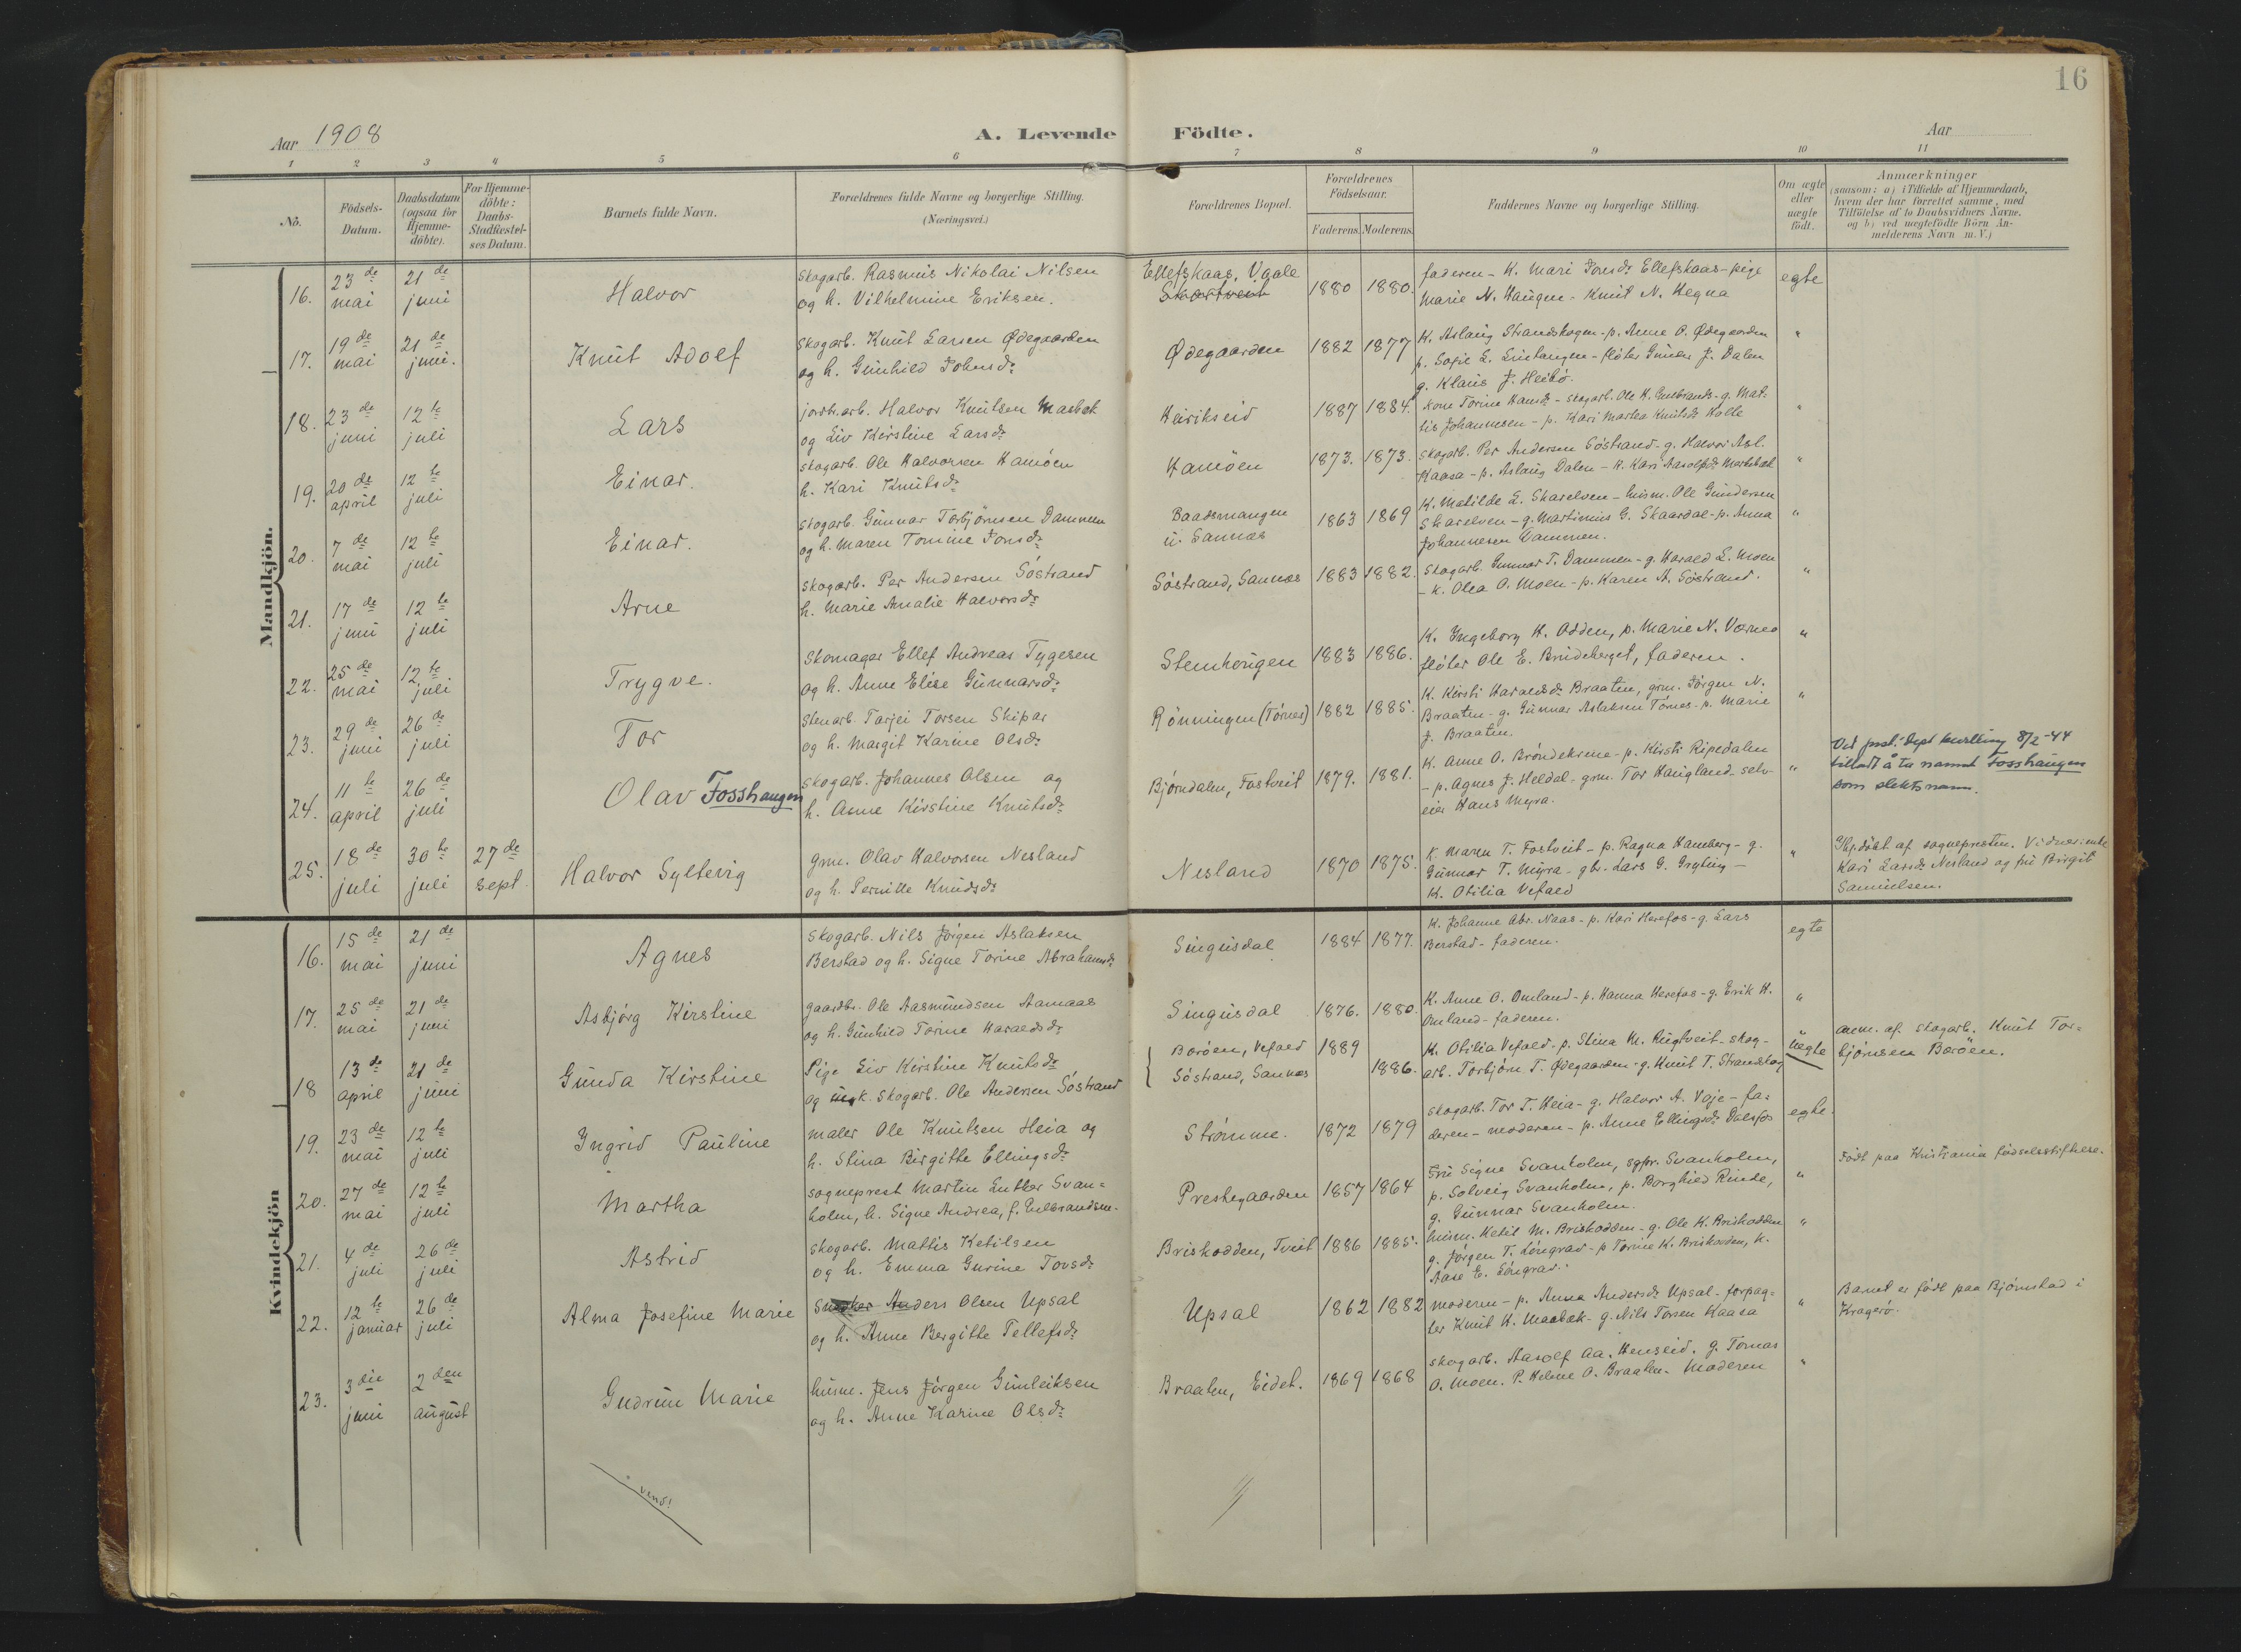 16
Aar 1908
A. Levende Födte.
Aar
1 2 3 4 5 6 7 8 9 10 11
No.
Födsels-Datum.
Daabsdatum (ogsaa for Hjemme-döbte).
For Hjemme-döbte: Daabs-Stadfæstel-ses Datum.
Barnets fulde Navn.
Forældrenes fulde Navne og borgerlige Stilling. (Næringsvei.)
Forældrenes Bopæl.
Forældrenes Födselsaar.
Faderens. Moderens.
Faddernes Navne og borgerlige Stilling.
Om ægte eller uægte födt.
Anmærkninger
(saasom: a) i Tilfælde af Hjemmedaab,
hvem der har forrettet samme, med
Tilföielse af to Daabsvidners Navne.
og b) ved uægtefödte Börn An-
melderens Navn m. V.)
Mandkjön.
16. 23de mai 21de juni Halvor
Skogarb. Rasmus Nikolai Nilsen
og h. Vilhelmine Eriksen.
Ellefskaas, Vaale
1880 1880.
faderen - K. Mari Jonsdr Ellefskaas - pige
Marie N. Haugen - Knut N. Hegna
egte
17. 19de mai 21de juni. Knut Adolf
Skogarb. Knut Larsen Ødegaarden
og h. Gunhild Johnsdr
Ødegaarden 1882 1877
K. Aslaug Strandskogen - p. Anne O. Ødegaarden
p. Sofie L. - fløter Gunder J. Dalen
g. Klaus J. Heibö.
"
18. 23de juni 12te juli Lars
jordb.arb. Halvor Knutsen Marbak
og Liv Kirstine Larsdr
Henrikseid 1887 1884.
Kone Torine Hansdr - skogarb. Ole H. - g. Mat-
tis Johannesen - p. Kari Martea Knutsdr Kolle
"
19. 20de april 12te juli Einar.
skogarb. Ole Halvorsen Hamöen
h. Kari Knutsdr
Hamöen 1873. 1873.
skogarb. Per Andersen Söstrand - g. Halvor Asl.
Kaasa - p. Aslaug Dalen - K. Kari Aasolfsdr
"
20. 7de mai 12te juli Einar.
skogarb. Gunnar Torbjörnsen Dammen
og h. Maren Tomine Jonsdr
Baadsmangen
u. Sannæs
1863 1869
K. Matilde L. Skarelven - husm. Ole Gundersen
Skarelven - g. Martinius G. Skaardal - p. Anna
Johannesen Dammen.
"
21. 17de juni 12te juli Arne
skogarb. Per Andersen Söstrand
h. Marie Amalie Halvorsdr
Söstrand, Sannæs 1883 1882.
Skogarb. Gunnar T. Dammen - g. Harald L. Moen
- K. Olea O. Moen - p. Karen A. Söstrand.
"
22. 25de mai 12te juli Trygve.
Skomager Ellef Andreas Tygesen
og h. Anne Elise Gunnarsdr
Stemhaugen 1883 1886.
K. Ingeborg H. Odden, p. Marie N. Værnes
fløter Ole E. Brudeberget, faderen.
"
23. 29de juni 26de juli Tor
Stenarb. Tarjei Torsen Skipar
og h. Margit Karine Olsdr
Rönningen (Törnes) 1882 1885.
K. Kirsti Haraldsdr Braaten, grm. Jörgen N.
Braaten - g. Gunnar Aslaksen Törnes - p. Marie
J. Braaten.
"
24. 11te april 26de juli Olav Fosshaugen
skogarb. Johannes Olsen og
h. Anne Kirstine Knutsdr
Björndalen, Fostveit 1879. 1881.
K. Anne O. Bröndekrene - p. Kirsti Ripedalen
- p. Agnes J. Heldal - grm. Tor Haugland - selv-
eier Hans Myra.
"
Ved just. dept bevilling 8/2-44
tillatt å ta navnet Fosshaugen
som slektsnavn.
25. 18de juli 30te juli 27de sept. Halvor Syltevig
grm. Olav Halvorsen Nesland
og h. Pernille Knudsdr
Nesland 1870 1875.
K. Maren T. Fostveit - p. Ragna Hamberg - g.
Gunnar T. Myra - gbr. Lars G. Grytting -
K. Otilia Vefald
"
Hj.döbt af sognepresten. Vidner: enke
Kari Larsdr Nesland og fru Birgit
Samuelsen.
Kvindekjön
16. 15de mai 21de juni Agnes
Skogarb. Nils Jörgen Aslaksen
Berstad og h. Signe Torine Abrahamsdr
Singusdal 1884 1877.
K. Johanne Abr. Naas - p. Kari Herefos - g. Lars
Berstad - faderen.
egte
17. 25de mai 21de juni Asbjörg Kirstine
gaardbr. Ole Aasmundsen Aamaas
og h. Gunhild Torine Haraldsdr
Singusdal 1876. 1880
K. Anne O. Omland - p. Hanna Herefos - g. Erik H.
Omland - faderen.
"
18 13de april 21de juni Gunda Kirstine
Pige Liv Kirstine Knutsdr
og ungk. skogarb. Ole Andersen Söstrand
Boröen, Vefald 1889
Söstrand, Sannæs 1886.
K. Otilia Vefald - p. Stina M. Rugtveit - skog-
arb. Torbjörn T. Ødegaarden - g. Knut T. Strandskog
uegte
anm. af skogarb. Knut Tor-
björnsen Boröen.
19. 23de mai 12te juli Ingrid Pauline
maler Ole Knutsen Heia og
h. Stina Birgitte Ellingsdr
Strömme. 1872 1879
skogarb. Tor T. Heia - g. Halvor A. Vaje - fa-
deren - moderen - p. Anne Ellingsdr Dalsfos
egte.
20. 27de mai 12te juli Martha
sogneprest Martin Luther Svan-
holm, h. Signe Andrea, f. Gulbrandsen.
Prestegaarden 1857 1864
Fru Signe Svanholm, sgpr. Svanholm,
p. Solveig Svanholm, p. Borghild Rinde,
g. Gunnar Svanholm.
"
Födt paa Kristiania födselsstiftelse.
21. 4de juli 26de juli Astrid
skogarb. Mattis Ketilsen
og h. Emma Gurine Torsdr
Briskodden, Tveit 1886 1885.
husm. Ketil M. Briskodden - g. Ole K. Briskodden
g. Jörgen T. Löngrav - p Torine K. Briskodden, K.
Aase E. Löngrav.
"
22. 12te januar 26de juli Alma Josefine Marie
Anders Olsen Upsal
og h. Anne Bergitte Tellefsdr
Upsal 1862 1882
moderen - p. Anna Andersdr Upsal - forpag-
ter Knut H. Maabæk - g. Nils Torsen Kaasa
"
Barnet er födt paa Björnstad i
Kragerö.
23. 3die juni 2den august Gudrun Marie
husm. Jens Jörgen Gunleiksen
og h. Anne Karine Olsdr
Braaten, Eidet. 1869 1868
skogarb. Aasolf Aa. Henseid. g. Tomas
O. Moen. P. Helene O. Braaten. Moderen
"
vend!